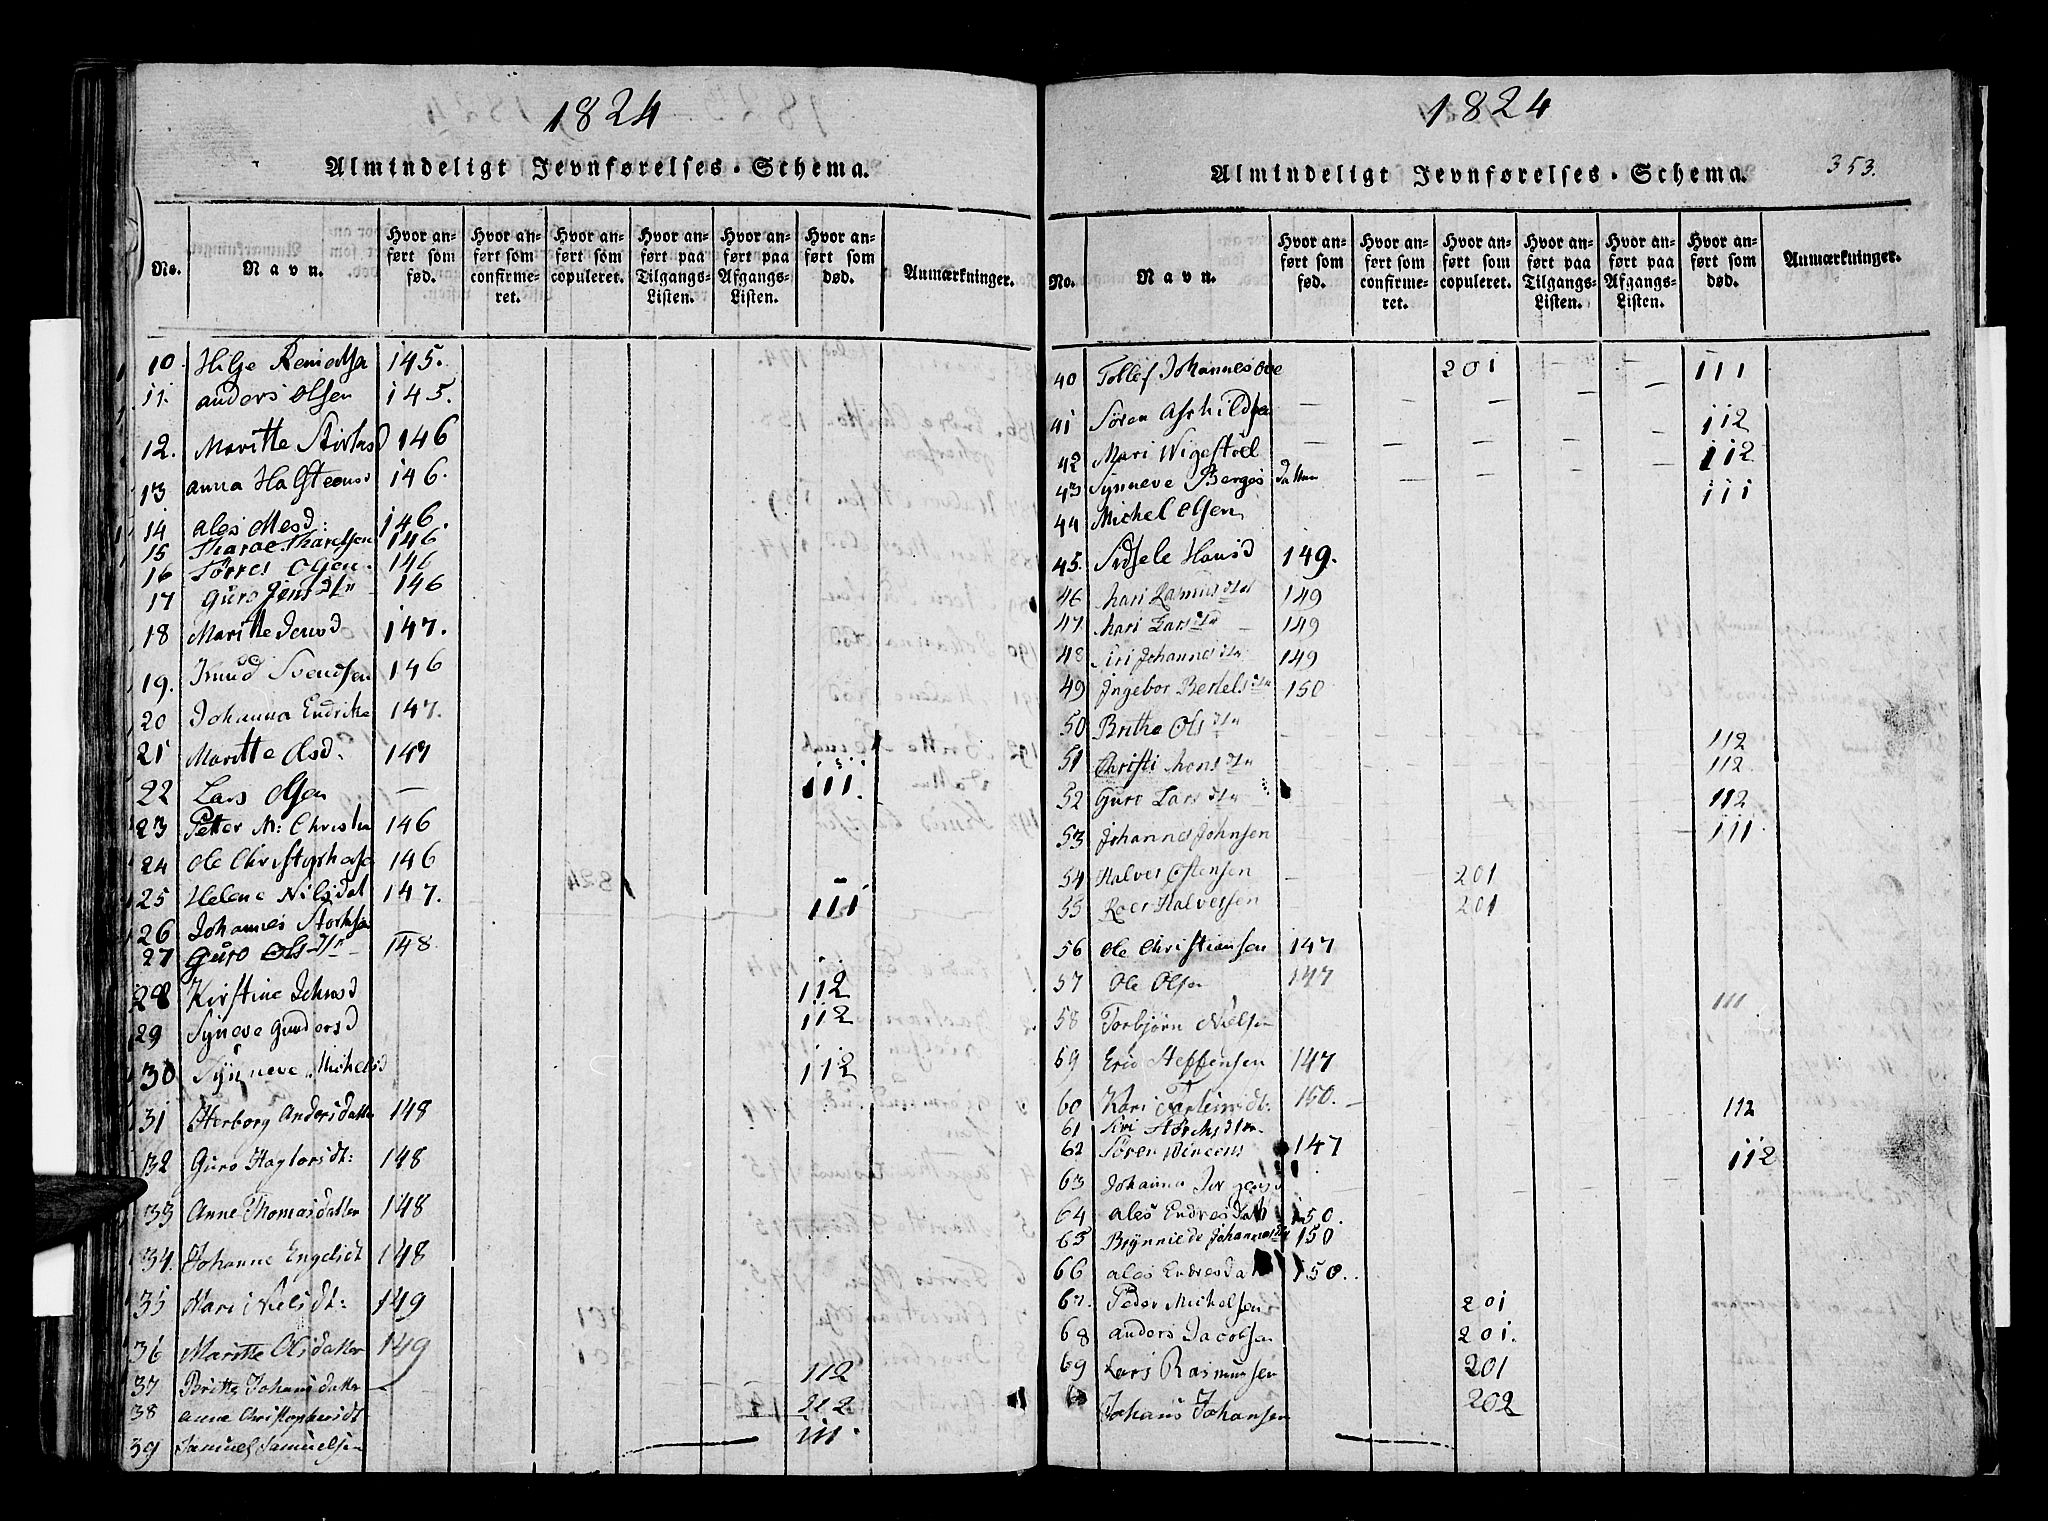 1824
Almindeligt Jevnførelses-Schema.
No.
Navn.
Hvor anført som fød.
Hvor anført som confirmeret.
Hvor anført som copuleret.
Hvor anført paa Tilgangs-Listen.
Hvor anført paa Afgangs-Listen.
Hvor anført som død.
Anmærkninger.
10. Helje 145.
11. anders Olsen 145.
12. Maritte 146
13 anna Halsteensd 146.
14 ales Mesd: 146.
15 146
16 Tørres Olsen. 146
17 Guro Jens dtr 146
18 Maritte Jensd 147.
19. Knud Svendsen 146
20 Johanna Endrite 147.
21 Maritte Olsd. 147
22 Lars Olsen — 111.
23 Petter M: Christia 146
24 Ole Christophersen 146
25 Helene Nilsdat 147. —
26 Johannes Storksen 111
27 Guro Ols dtr — 148.
28 Kirstine Johnsd 112
29 Syneve Gundersd 112
30 Synneve Michelsd 112
31 Herborg Andersdatter 148
32 Guro Haglorsdt: 148
33 Anne Thomasdatter 148
34. Johanne Engelsdt 148
35 Mari Nielsdt: 149
36 Maritte Olsdatter 149
37 Britte Johansdatter — 112
38 anne Christophersdt 112
39 Samuel Samuelsen 111.
1824
353.
Almindeligt Jevnførelses-Schema.
No.
Navn.
Hvor anført som fød.
Hvor anført som confirmeret.
Hvor anført som copuleret.
Hvor anført paa Tilgangs-Listen.
Hvor anført paa Afgangs-Listen.
Hvor anført som død.
Anmærkninger.
40 Tollef Johannes 201 111
41 Søren 112
42 Mari Wigestøel 112
43 Synneve Bergesdatter 111
44 Michel Olsen
45. Sidsele Hansd 149.
46 Mari Rasmus dtr 149
47 Mari Lars dtr — 149
48 Siri Johannes dtr 149
49 Ingebor Bertels dtr 150
50 Britha Ols dtr 112
51 Christi Mons dtr 112
52 Guro Lars dtr 112
53 Johannes Johnsen 111
54 Halver Ostensen 201
55 Roer Halversen 201
56 Ole Christiansen 147
57 Ole Olsen 147
58 Torbjørn Nielsen 111
69 Erid Steffensen 147
60 Kari dt: 150.
61 Siri Størchs dtr. 112
62 Søren 147
63 Johanna 112
64 ales Endresdatt 150.
65 Brynnilde Johannesdtr 150
66 ales Endresdatt 150.
67 Peder Michelsen 201
68 anders Jacobsen 201.
69 Lars Rasmunsen 201
Johans Johansen 202